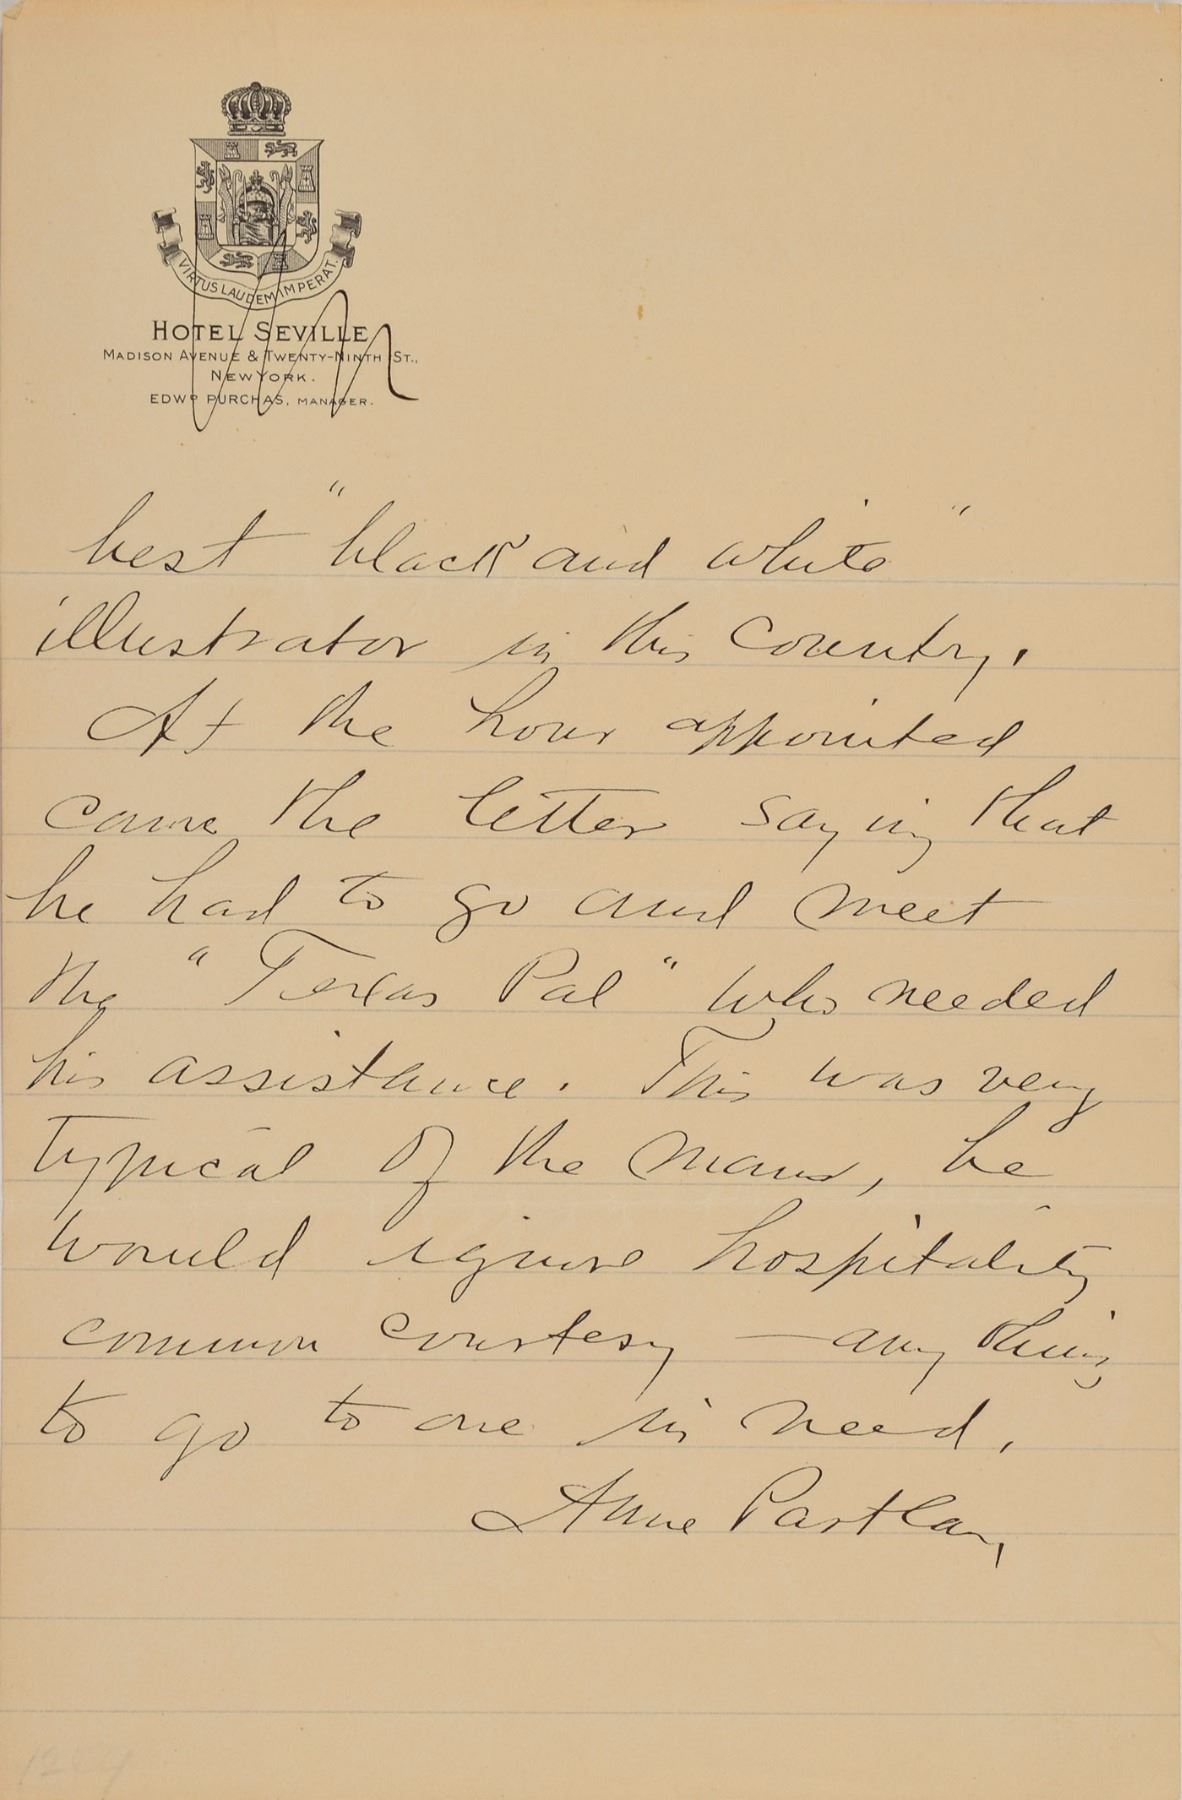 VIRTUS LAUDEM IMPERAT.
HOTEL SEVILLE
MADISON AVENUE & TWENTY-NINTH ST.,
NEW YORK.
EDWD PURCHAS, MANAGER.
best "black and white"
illustrator in this country.
At the hour appointed
came the letter saying that
he had to go and meet
the "Texas Pal" who needed
his assistance. This was very
typical of the man, he
would ignore hospitality
common courtesy — anything
to go to one in need.
Anne Partlan,